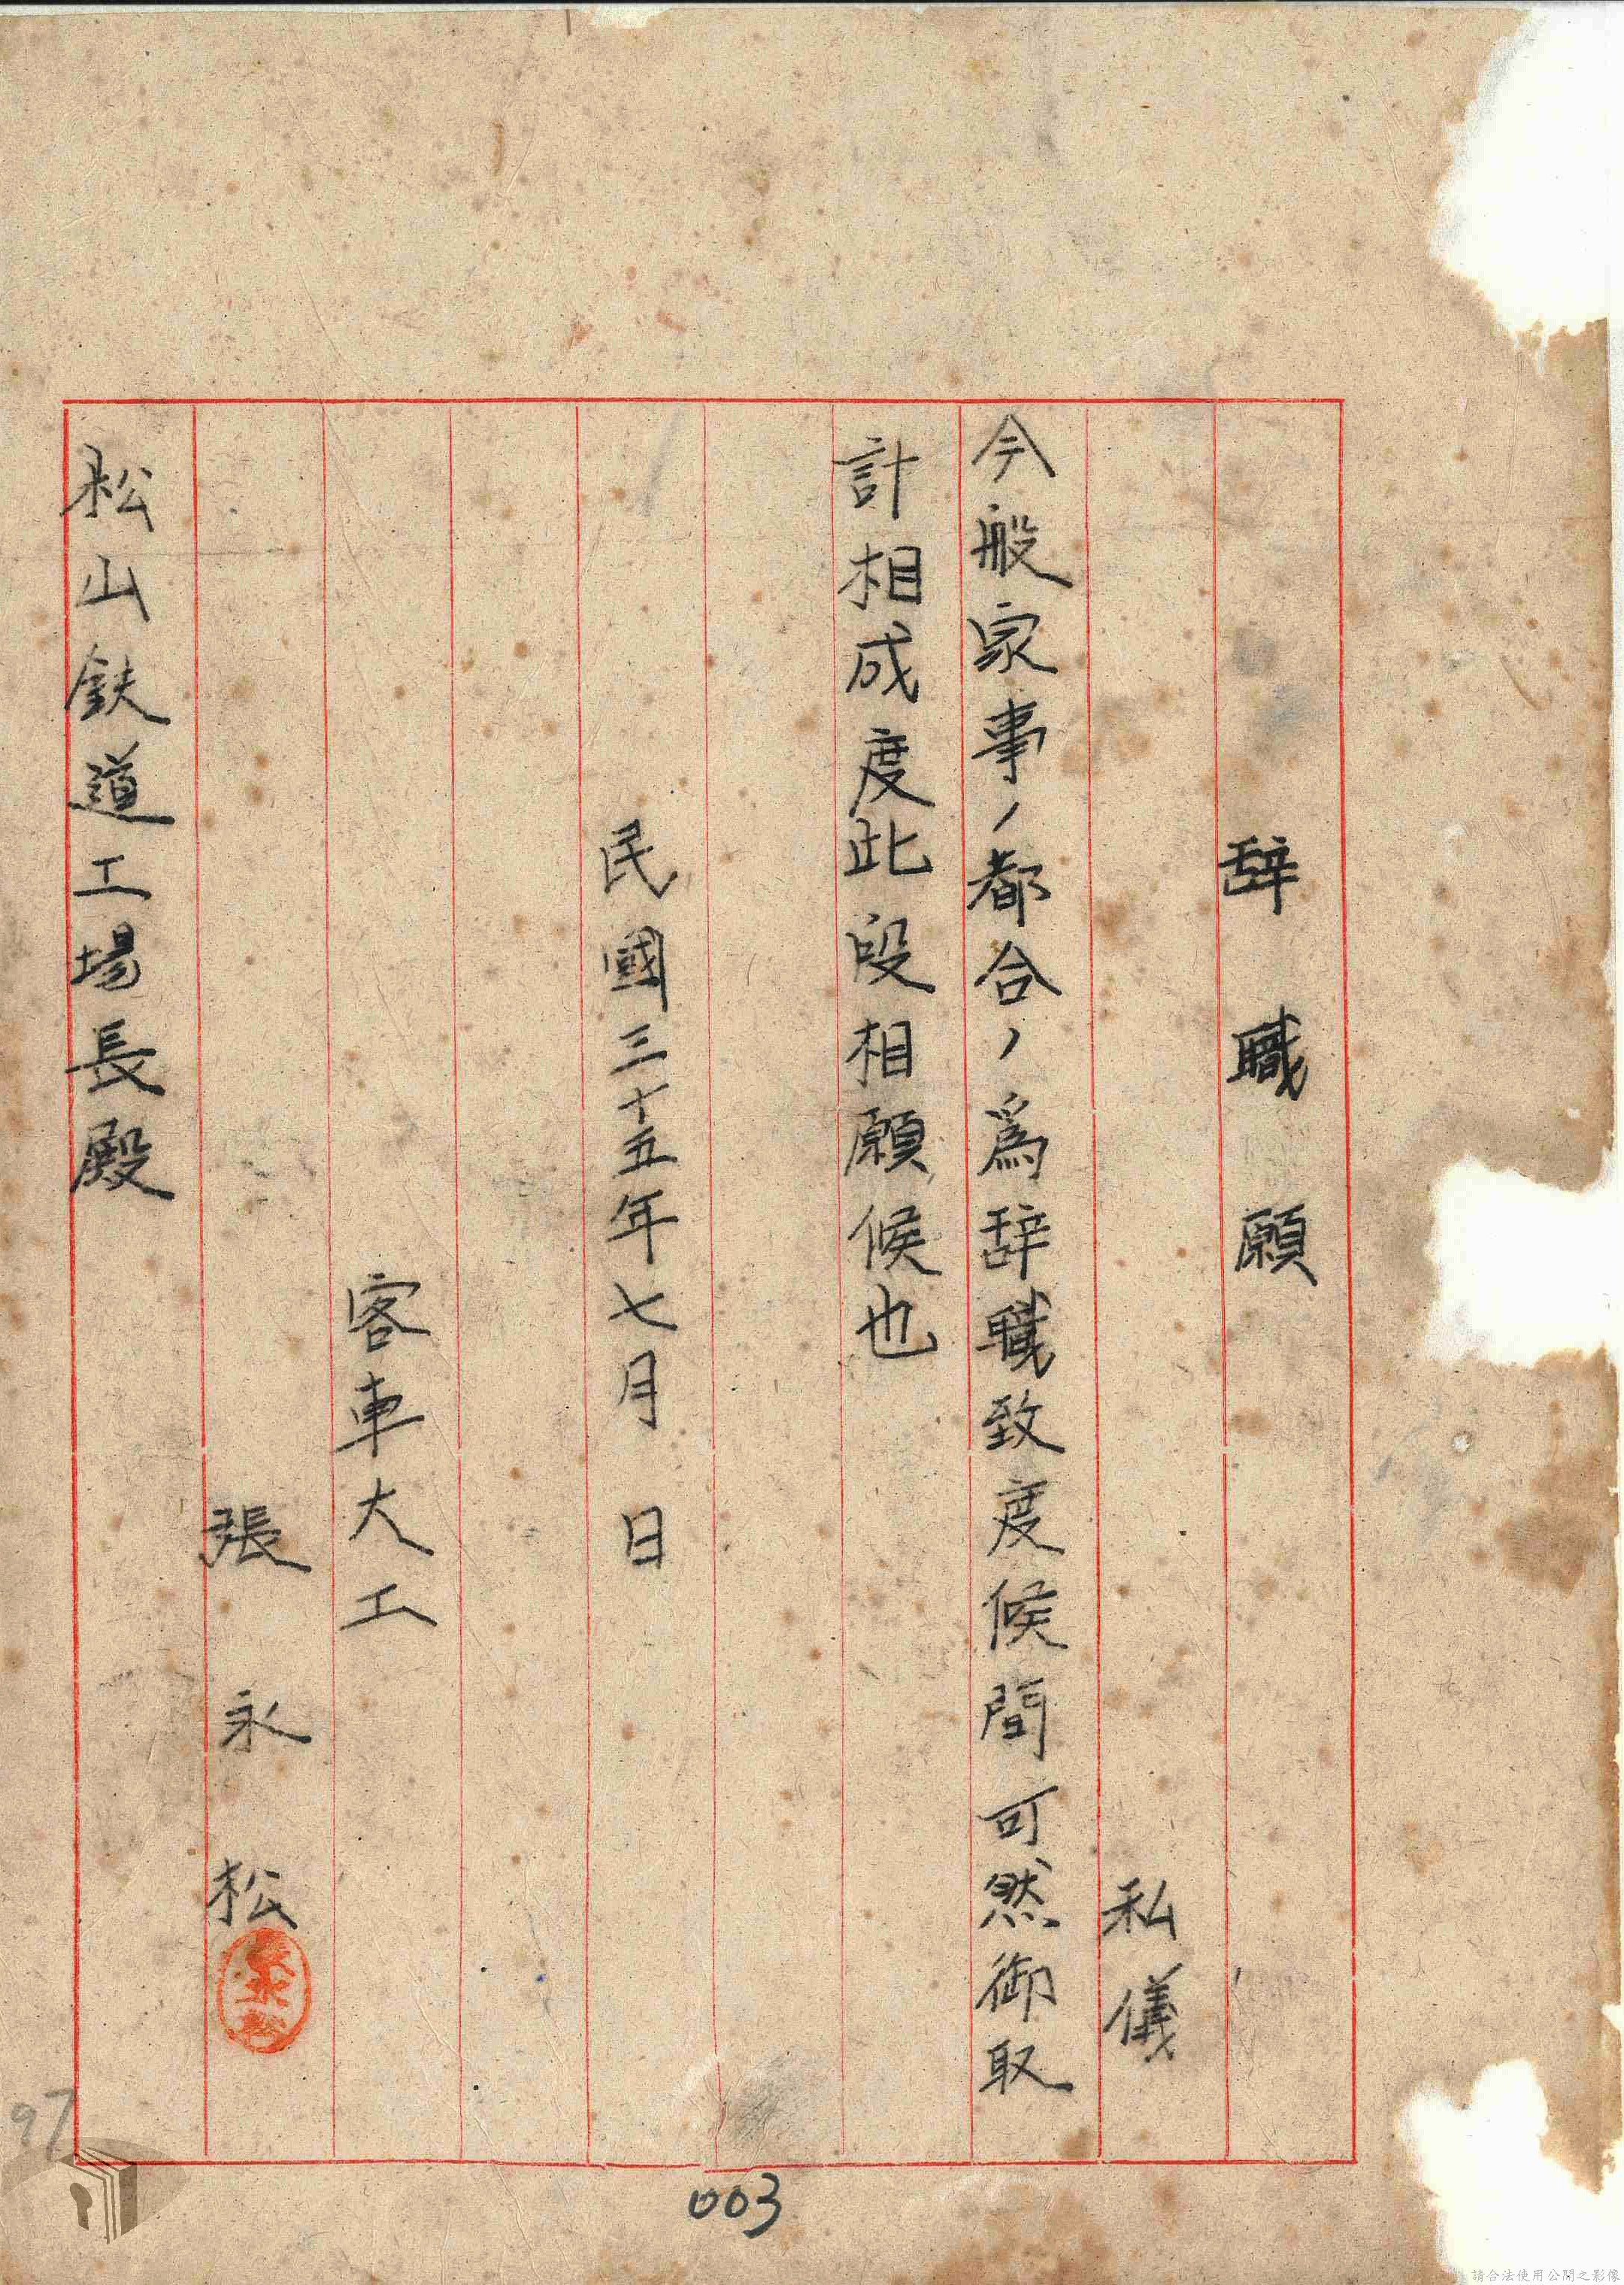 辞職願
私儀
今般家事ノ都合ノ為辞職致度候間可然御取
計相成度此段相願候也
民國三十五年七月 日
客車大工
張永松
松山鉄道工場長殿
97
003
請合法使用公開之影像